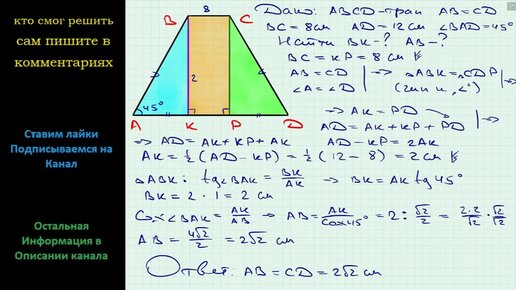 кто смог решить
сам пишите в
комментариях
Ставим лайки
Подписываемся на
Канал
Остальная
Информация в
Описании канала
8
B C
2
45°
A K P D
Дано: ABCD-трап AB=CD
BC=8см AD=12см ∠BAD=45°
Найти BK-? AB-?
BC=KP=8см
AB=CD |→ △ABK=△CDP |→
∠A=∠D (гип и ∠)
→ AK=PD |→
AD=AK+KP+PD
→ AD=AK+KP+AK AD-KP=2AK
AK=½(AD-KP)=½(12-8)=2см
△ABK: tg∠BAK=BK/AK → BK=AK tg45°
BK=2·1=2см
Cos∠BAK=AK/AB → AB=AK/cos45°=2:√2/2=2·2/√2·√2/√2
AB=4√2/2=2√2см
Ответ: AB=CD=2√2см